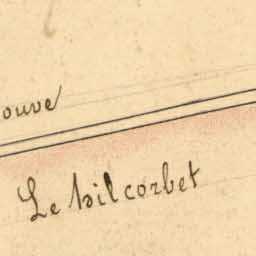 ouve
Le hil corbet